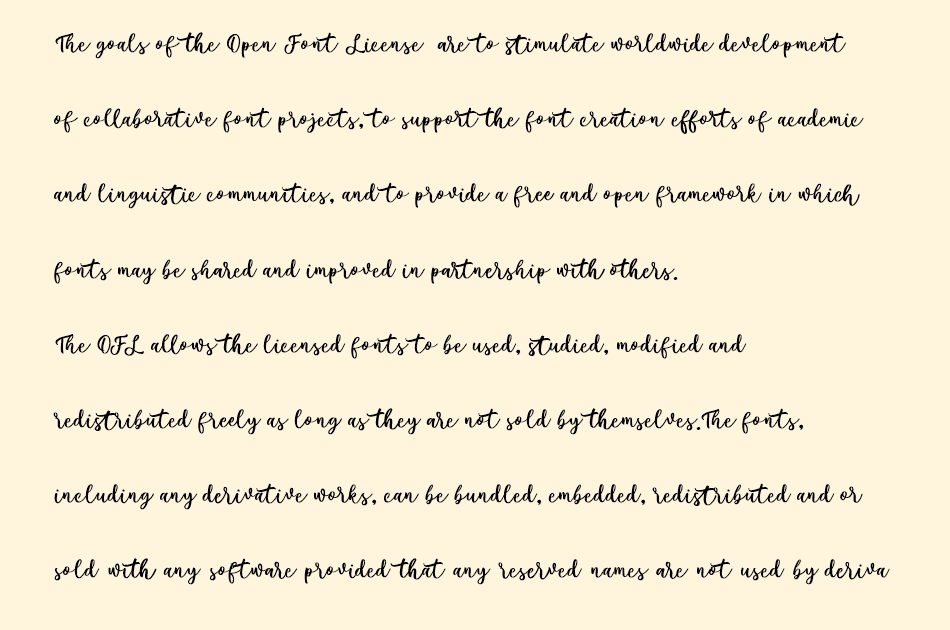 The goals of the Open Font License are to stimulate worldwide development
of collaborative font projects, to support the font creation efforts of academic
and linguistic communities, and to provide a free and open framework in which
fonts may be shared and improved in partnership with others.
The OFL allows the licensed fonts to be used, studied, modified and
redistributed freely as long as they are not sold by themselves. The fonts,
including any derivative works, can be bundled, embedded, redistributed and or
sold with any software provided that any reserved names are not used by deriva